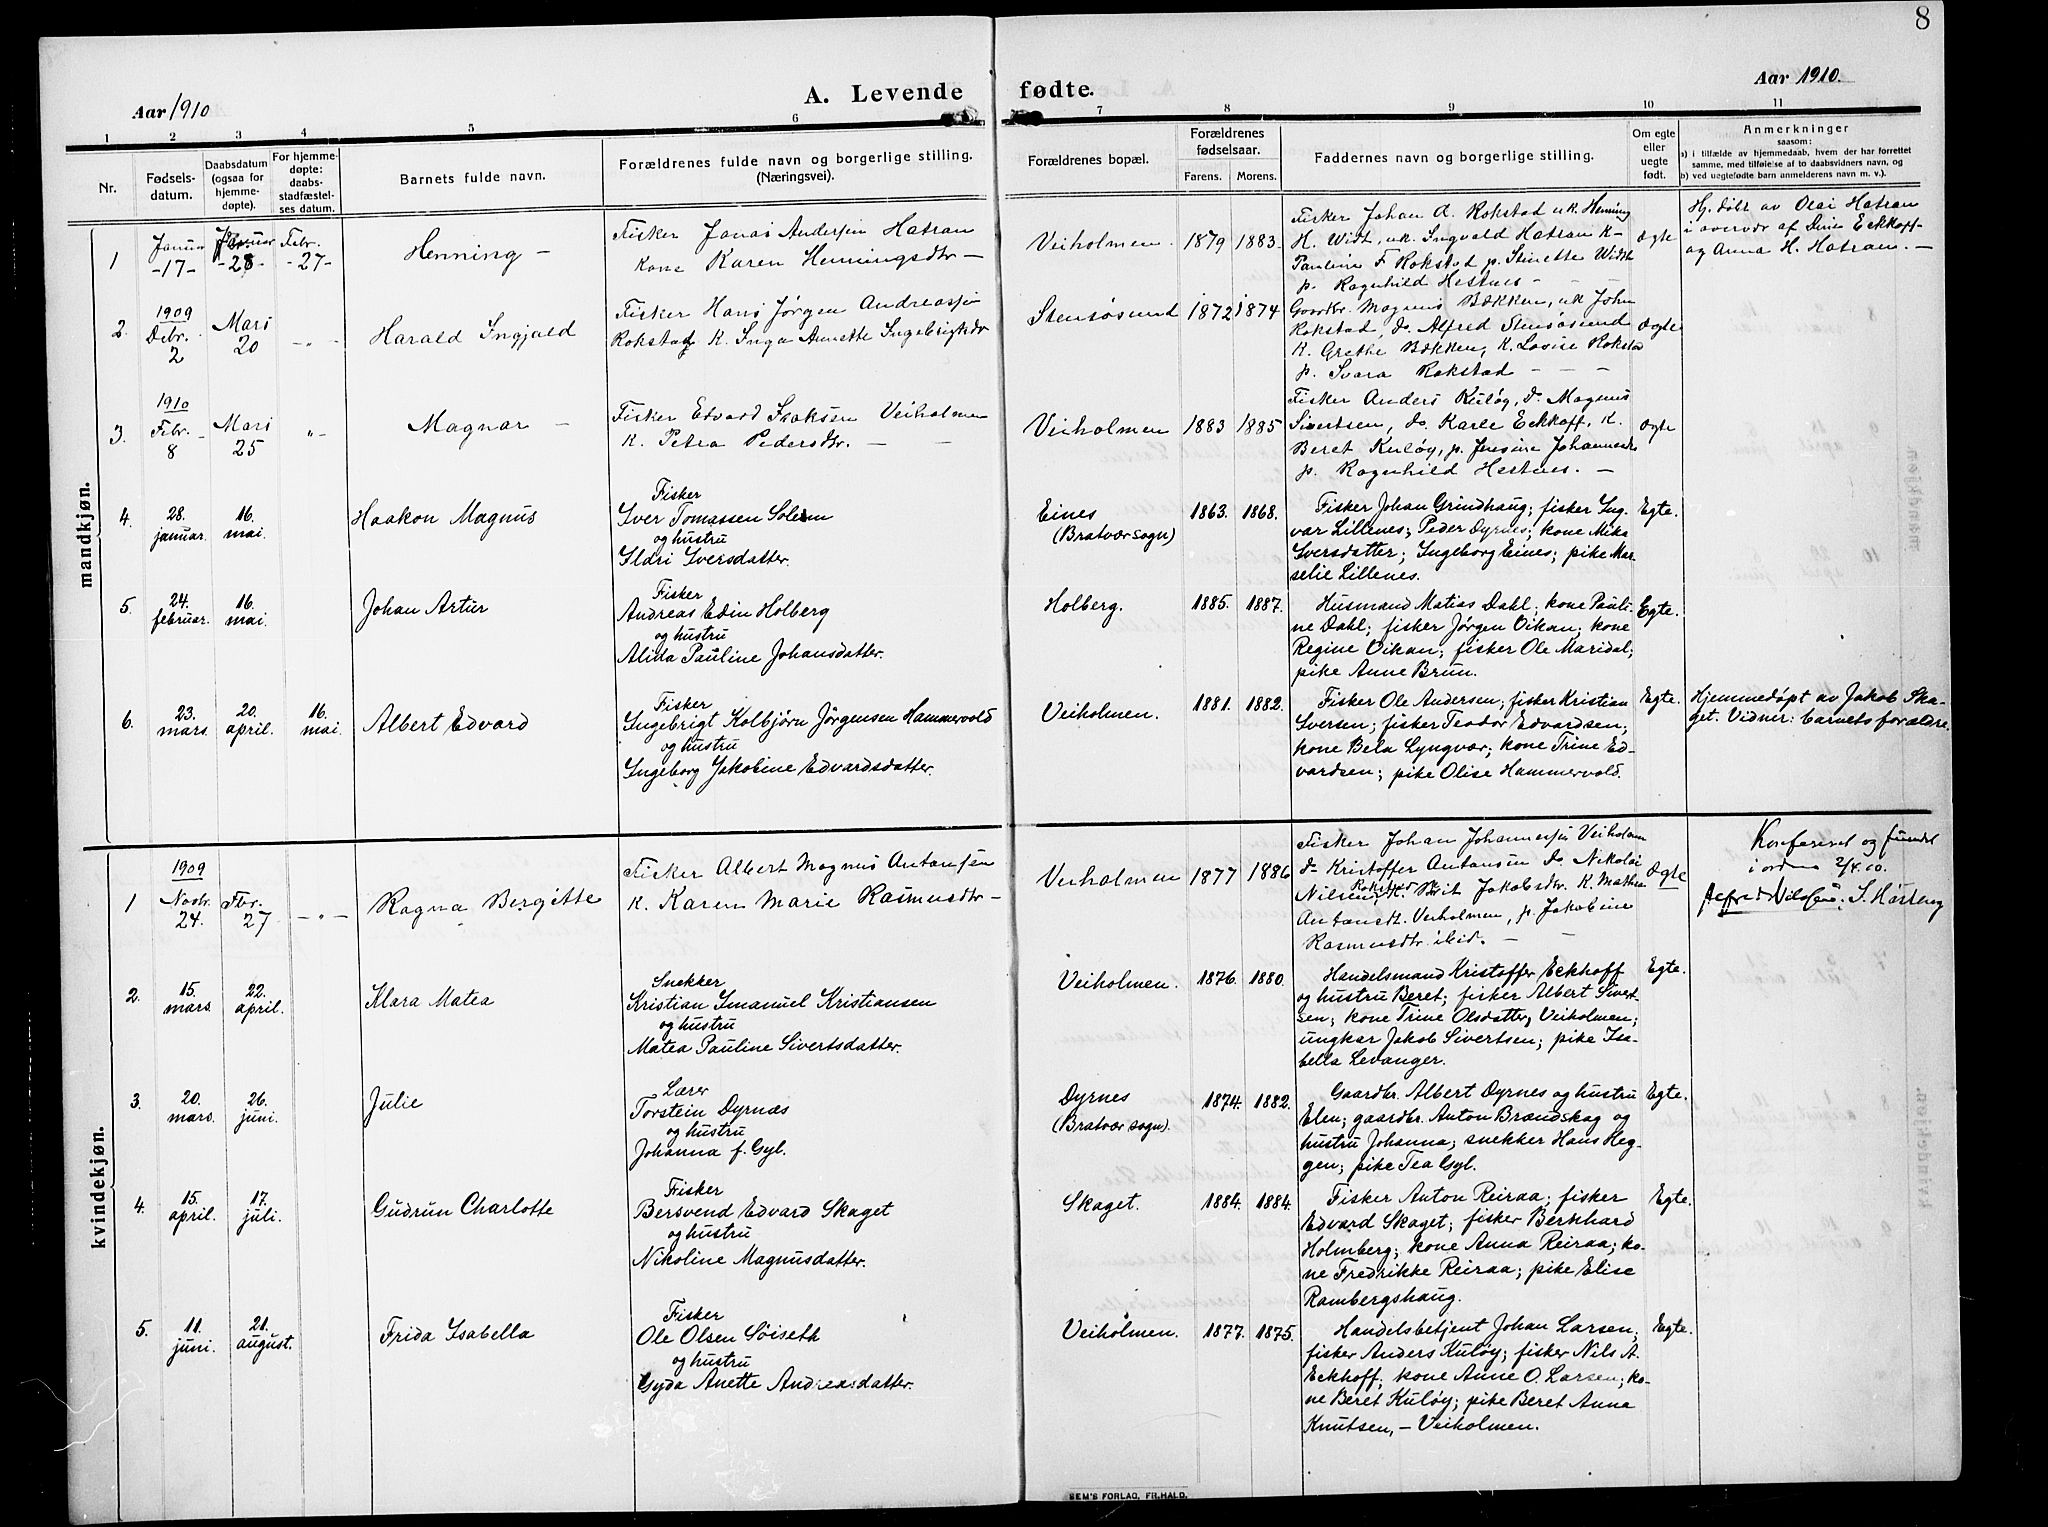 8
Aar 1910
A. Levende fødte.
Aar 1910.
1 2 3 4 5 6 7 8 9 10 11
Nr.
Fødsels-
datum.
Daabsdatum
(ogsaa for
hjemme-
døpte).
For hjemme-
døpte:
daabs-
stadfæstel-
ses datum.
Barnets fulde navn.
Forældrenes fulde navn og borgerlige stilling.
(Næringsvei).
Forældrenes bopæl.
Forældrenes
fødselsaar.
Farens. Morens.
Faddernes navn og borgerlige stilling.
Om egte
eller
uegte
født.
Anmerkninger
saasom:
a) i tilfælde av hjemmedaab, hvem der har forrettet
samme, med tilføielse af to daabsvidners navn, og
b) ved uegtefødte barn anmelderens navn m. v.).
mandkjøn.
1
Januar
-17-
Januar
-28-
Febr.
-27-
Henning -
Fisker Jonas Andersen Hatran
Kone Karen Henningsdtr -
Veiholmen.
1879 1883
Fisker Johan A. Rokstad uk. Henning
H. Widt, uk. Ingvald Hatran K-
Pauline F Rokstad p. Stinette Widt
p. Ragnhild Hestnes -
Ægte
Hj. døbt av Olai Hatran
i overvær af Dine Eckhoff
og Anna H. Hatran. -
2.
1909
Debr.
2
Mars
20
- " -
Harald Ingjald
Fisker Hans Jørgen Andreassen
Rokstad K. Inga Annette Ingebrigtsdtr
Stensøsund
1872 1874
Gaardbr. Magnus Bækken, uk John
Rokstad, do. Alfred Stensøsund
K. Grethe Bækken, K. Lovise Rokstad
p. Svara Rokstad - - -
Ægte
3.
1910
Febr.
8
Mars
25
"-
Magnar -
Fisker Edvard Isaksen Veiholmen
K. Petra Pedersdtr. - -
Veiholmen
1883 1885
Fisker Anders Kuløy, do. Magnus
Sivertsen, do. Karle Eckhoff, K.
Beret Kuløy, p. Jensine Johannesdtr
p. Ragnhild Hestnes. -
Ægte
4.
28.
januar.
16.
mai.
Haakon Magnus
Fisker
Iver Tomassen Solem
og hustru
Ildri Iversdatter.
Eines
(Bratvær sogn)
1863. 1868.
Fisker Johan Grindhaug; fisker Ing-
var Lillenes; Peder Dyrnes; kone Mika
Iversdatter; Ingeborg Eines; pike Mar-
selie Lillenes.
Egte.
5.
24.
februar.
16.
mai.
Johan Artur
Fisker
Andreas Edin Holberg
og hustru
Alida Pauline Johansdatter.
Holberg.
1885. 1887.
Husmand Matias Dahl; kone Pauli-
ne Dahl; fisker Jørgen Vikan; kone
Regine Vikan; fisker Ole Maridal;
pike Anne Brun.
Egte.
6.
23.
mars.
20.
april.
16.
mai.
Albert Edvard
Fisker
Ingebrigt Kolbjørn Jørgensen Hammervold
og hustru
Ingeborg Jakobine Edvardsdatter.
Veiholmen.
1881. 1882.
Fisker Ole Andersen; fisker Kristian
Iversen; fisker Teodor Edvardsen;
kone Bela Lyngvær; kone Trine Ed-
vardsen; pike Olise Hammervold.
Egte.
Hjemmedøpt av Jakob Ska-
get. Vidner: barnets forældre.
kvindekjøn.
1
1909
Novbr.
24.
Fbr.
27
- " -
Ragna Bergitte
Fisker Albert Magnus Antonsen
K. Karen Marie Rasmusdtr -
Veiholmen
1877 1886
Fisker Johan Johannessen Veiholmen
do Kristoffer Antonsen do. Nikolai
Nilsen Rokstad K. Berit Jakobsdtr. K. Mathea
Antonsdt. Veiholmen, p. Jakobine
Rasmusdtr ibid. - -
Ægte
Konfereret og fundet
i orden 2/4.10.
Alfred Nilsen.
2.
15.
mars.
22.
april.
Klara Matea
Snekker
Kristian Imanuel Kristiansen
og hustru
Matea Pauline Sivertsdatter.
Veiholmen.
1876. 1880.
Handelsmand Kristoffer Eckhoff
og hustru Beret; fisker Albert Sivert-
sen; kone Trine Olsdatter, Veiholmen;
ungkar Jakob Sivertsen; pike Isa-
bella Levanger.
Egte.
3.
20.
mars.
26.
juni.
Julie
Lærer
Torstein Dyrnæs
og hustru
Johanna f. Gyl.
Dyrnes
(Bratvær sogn).
1874. 1882.
Gaardbr. Albert Dyrnes og hustru
Elen; gaardbr. Anton Brændskag og
hustru Johanna; snekker Hans Heg-
gen; pike Tea Gyl.
Egte.
4.
15.
april.
17.
juli.
Gudrun Charlotte
Fisker
Bersvend Edvard Skaget
og hustru
Nikoline Magnusdatter.
Skaget.
1884. 1884.
Fisker Anton Reiraa; fisker
Edvard Skaget; fisker Bernhard
Holmberg; kone Anna Reiraa; ko-
ne Fredrikke Reiraa; pike Elise
Rambergshaug.
Egte.
5.
11.
juni.
21.
august.
Frida Isabella
Fisker
Ole Olsen Søiseth
og hustru
Gyda Anette Andreasdatter.
Veiholmen.
1877. 1875.
Handelsbetjent Johan Larsen;
fisker Anders Kuløy; fisker Nils A.
Eckhoff; kone Anne O. Larsen; ko-
ne Beret Kuløy; pike Beret Anna
Knutsen, - Veiholmen.
Egte.
SEM'S FORLAG, FR.HALD.